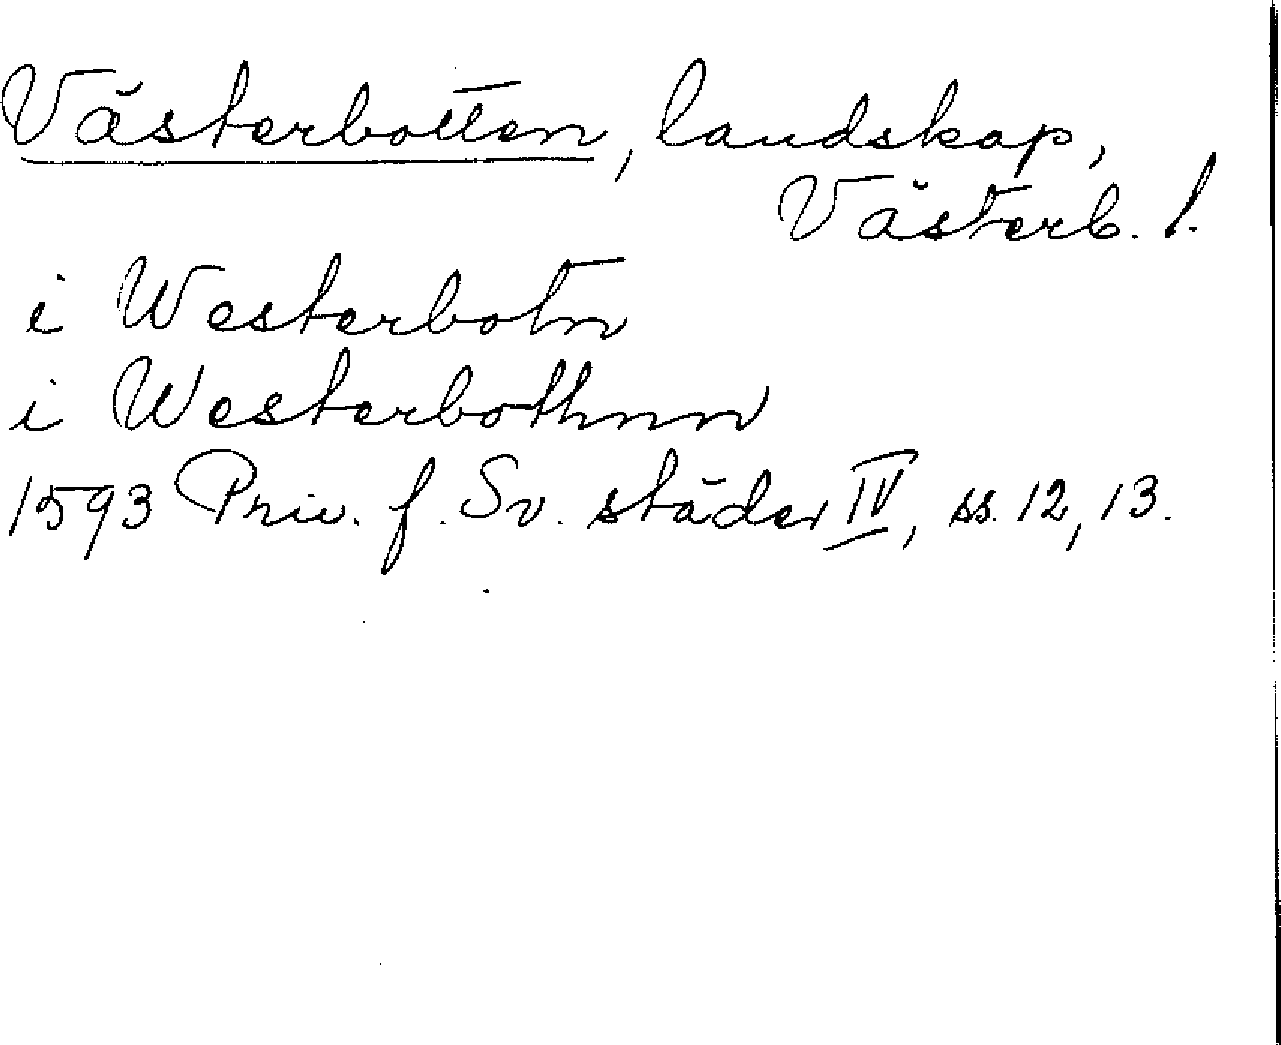 Västerbotten, landskap,
Västerb. l.
i Westerbotn
i Westerbothnn
1593 Priv. f. Sv. städer IV, ss. 12, 13.